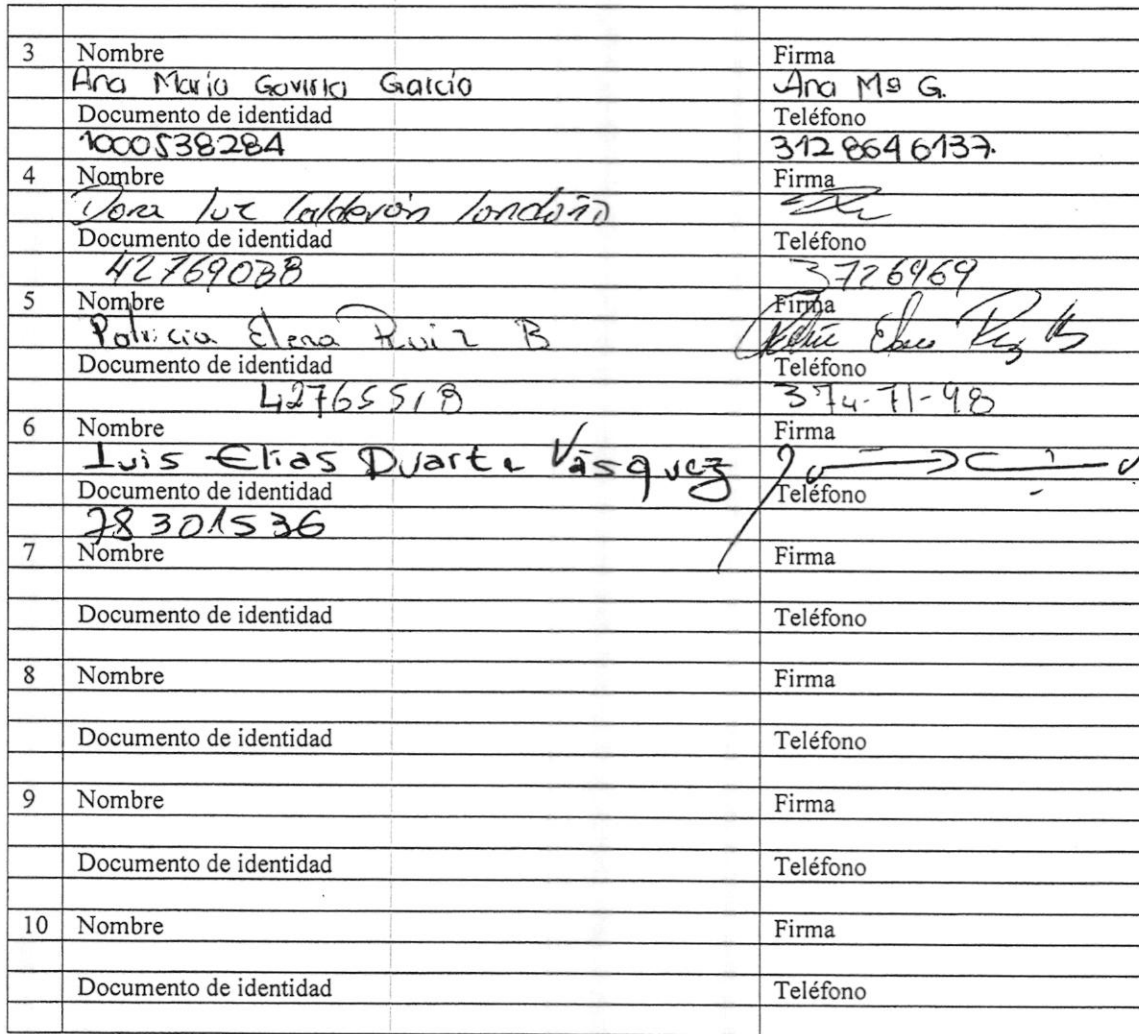 3 Nombre Firma
Ana María Gaviria García Ana Mª G.
Documento de identidad Teléfono
1000538284 3128646137.
4 Nombre Firma
Dora Luz Calderón Londoño
Documento de identidad Teléfono
42769038 3726969
5 Nombre Firma
Patricia Elena Ruiz B
Documento de identidad Teléfono
42765518 374-71-98
6 Nombre Firma
Luis Elias Duarte Vásquez
Documento de identidad Teléfono
78301536
7 Nombre Firma
Documento de identidad Teléfono
8 Nombre Firma
Documento de identidad Teléfono
9 Nombre Firma
Documento de identidad Teléfono
10 Nombre Firma
Documento de identidad Teléfono